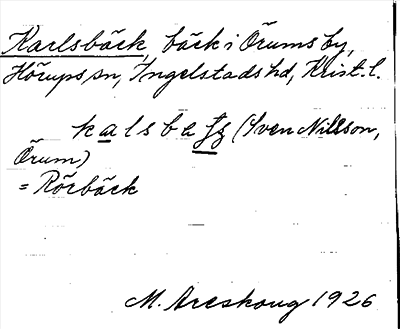 Karlsbäck, bäck i Örums by,
Hörups sn, Ingelstads hd, Krist. l.
kalsba (Sven Nilsson,
Örum)
= Rörbäck
M. Areskoug 1926